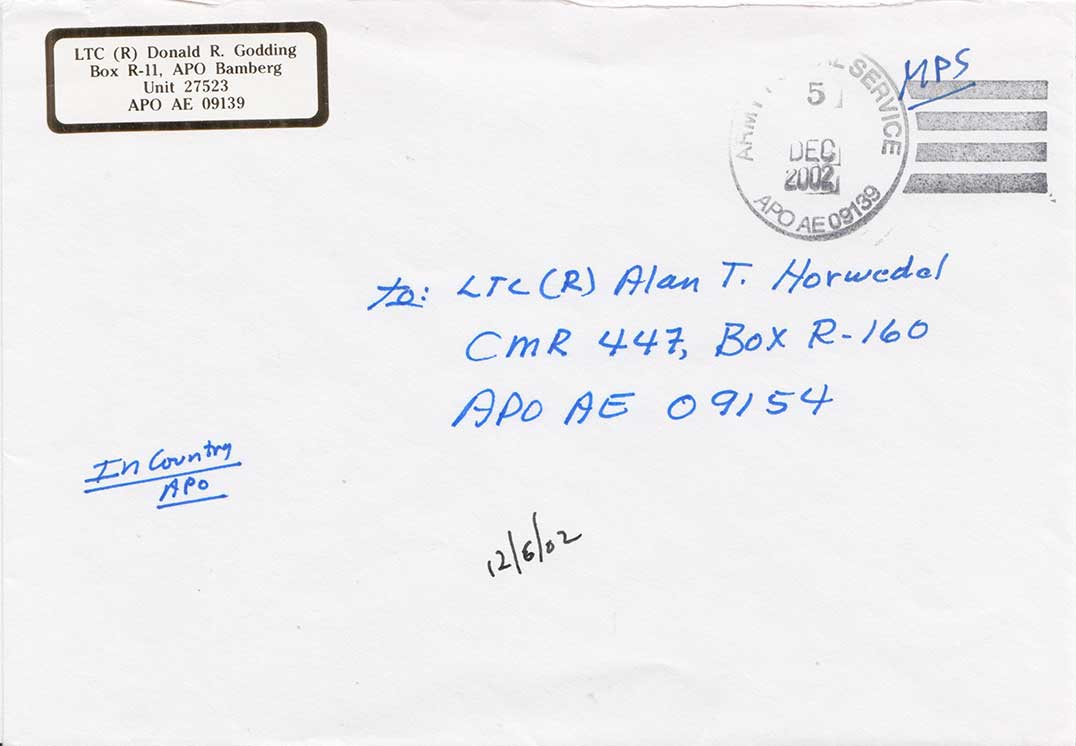 LTC (R) Donald R. Godding
Box R-11, APO Bamberg
Unit 27523
APO AE 09139
MPS
SERVICE
5
DEC
2002
APO AE 09139
to: LTC (R) Alan T. Horwedel
CMR 447, Box R-160
APO AE 09154
In Country
APO
12/6/02